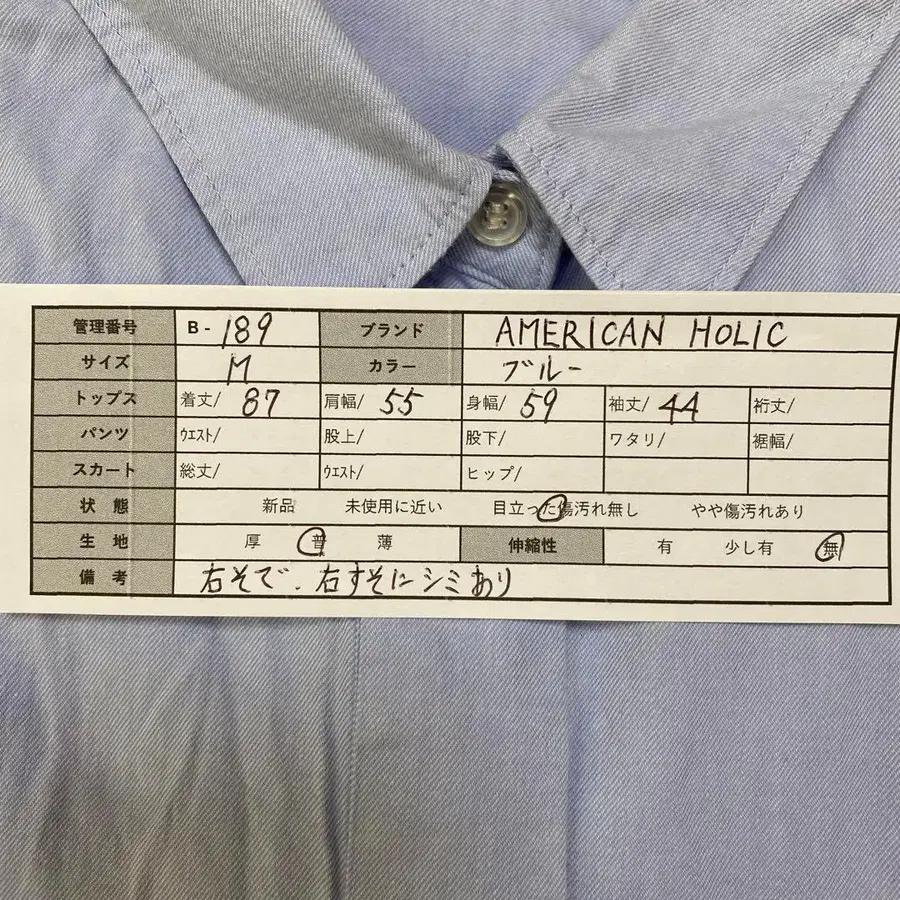 管理番号 B- 189 ブランド AMERICAN HOLIC
サイズ M カラー ブルー
トップス 着丈/ 87 肩幅/ 55 身幅/ 59 袖丈/ 44 裄丈/
パンツ ウエスト/ 股上/ 股下/ ワタリ/ 裾幅/
スカート 総丈/ ウエスト/ ヒップ/
状態 新品 未使用に近い 目立った傷汚れ無し やや傷汚れあり
生地 厚 普 薄 伸縮性 有 少し有 無
備考 右そで、右すそにシミあり